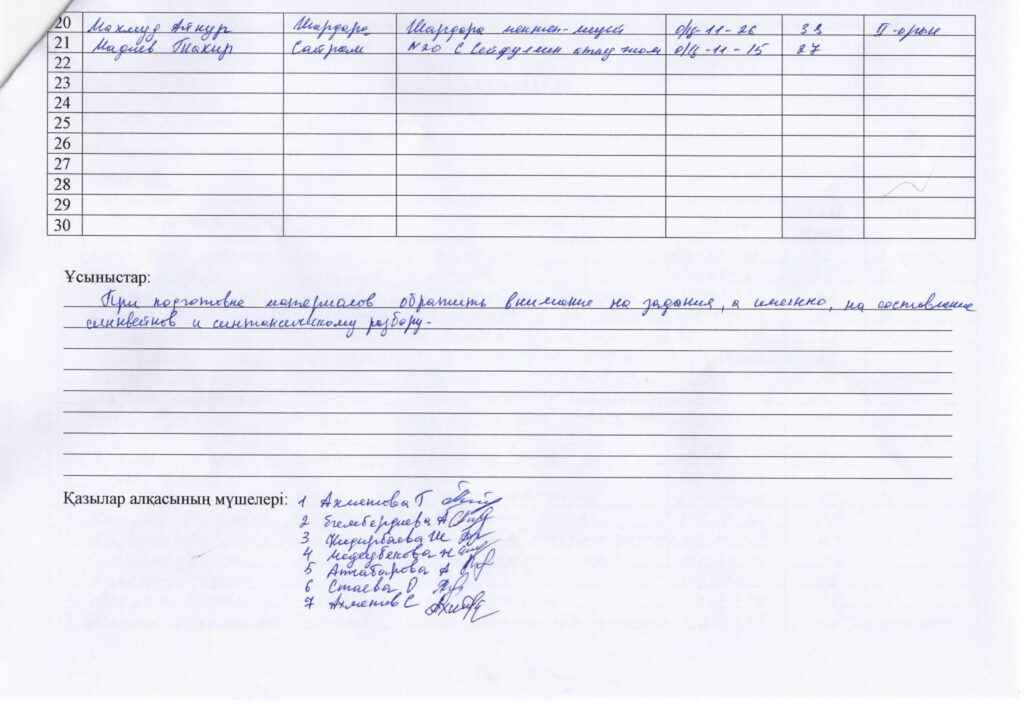 20 Махмуд Айнур Шардара Шардара мектеп-лицей о/ц-11-26 33 II-орын
21 Мадиев Тахир Сайрам №20 С Сейфуллин о/ц-11-15 27
22
23
24
25
26
27
28
29
30
Ұсыныстар:
При подготовке материалов обратить внимание на задания, а именно, на составление
синквейнов и синтаксическому разбору.
Қазылар алқасының мүшелері: 1 Ахметова Г
2 Бекмбердиева А
3 Кидирбаева Ш
4 Мадедбекова Н
5 Атабарова А
6 Стаева О
7 Ахметов С